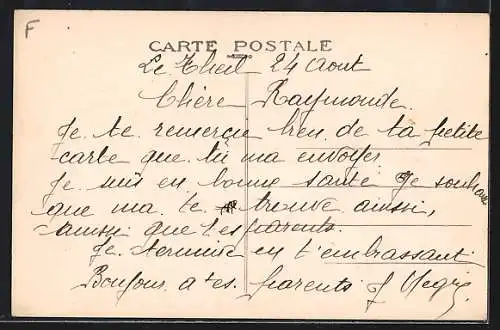 F
CARTE POSTALE
Le Theil 24 Aout
Chère Raymonde.
Je te remercie bien de ta petite
carte que tu ma envoyer
Je suis en bonne santé Je souhaite
que ma te trouve aussi,
Ainsi que tes parents.
Je termine en t'embrassant
Bonjour a tes parents